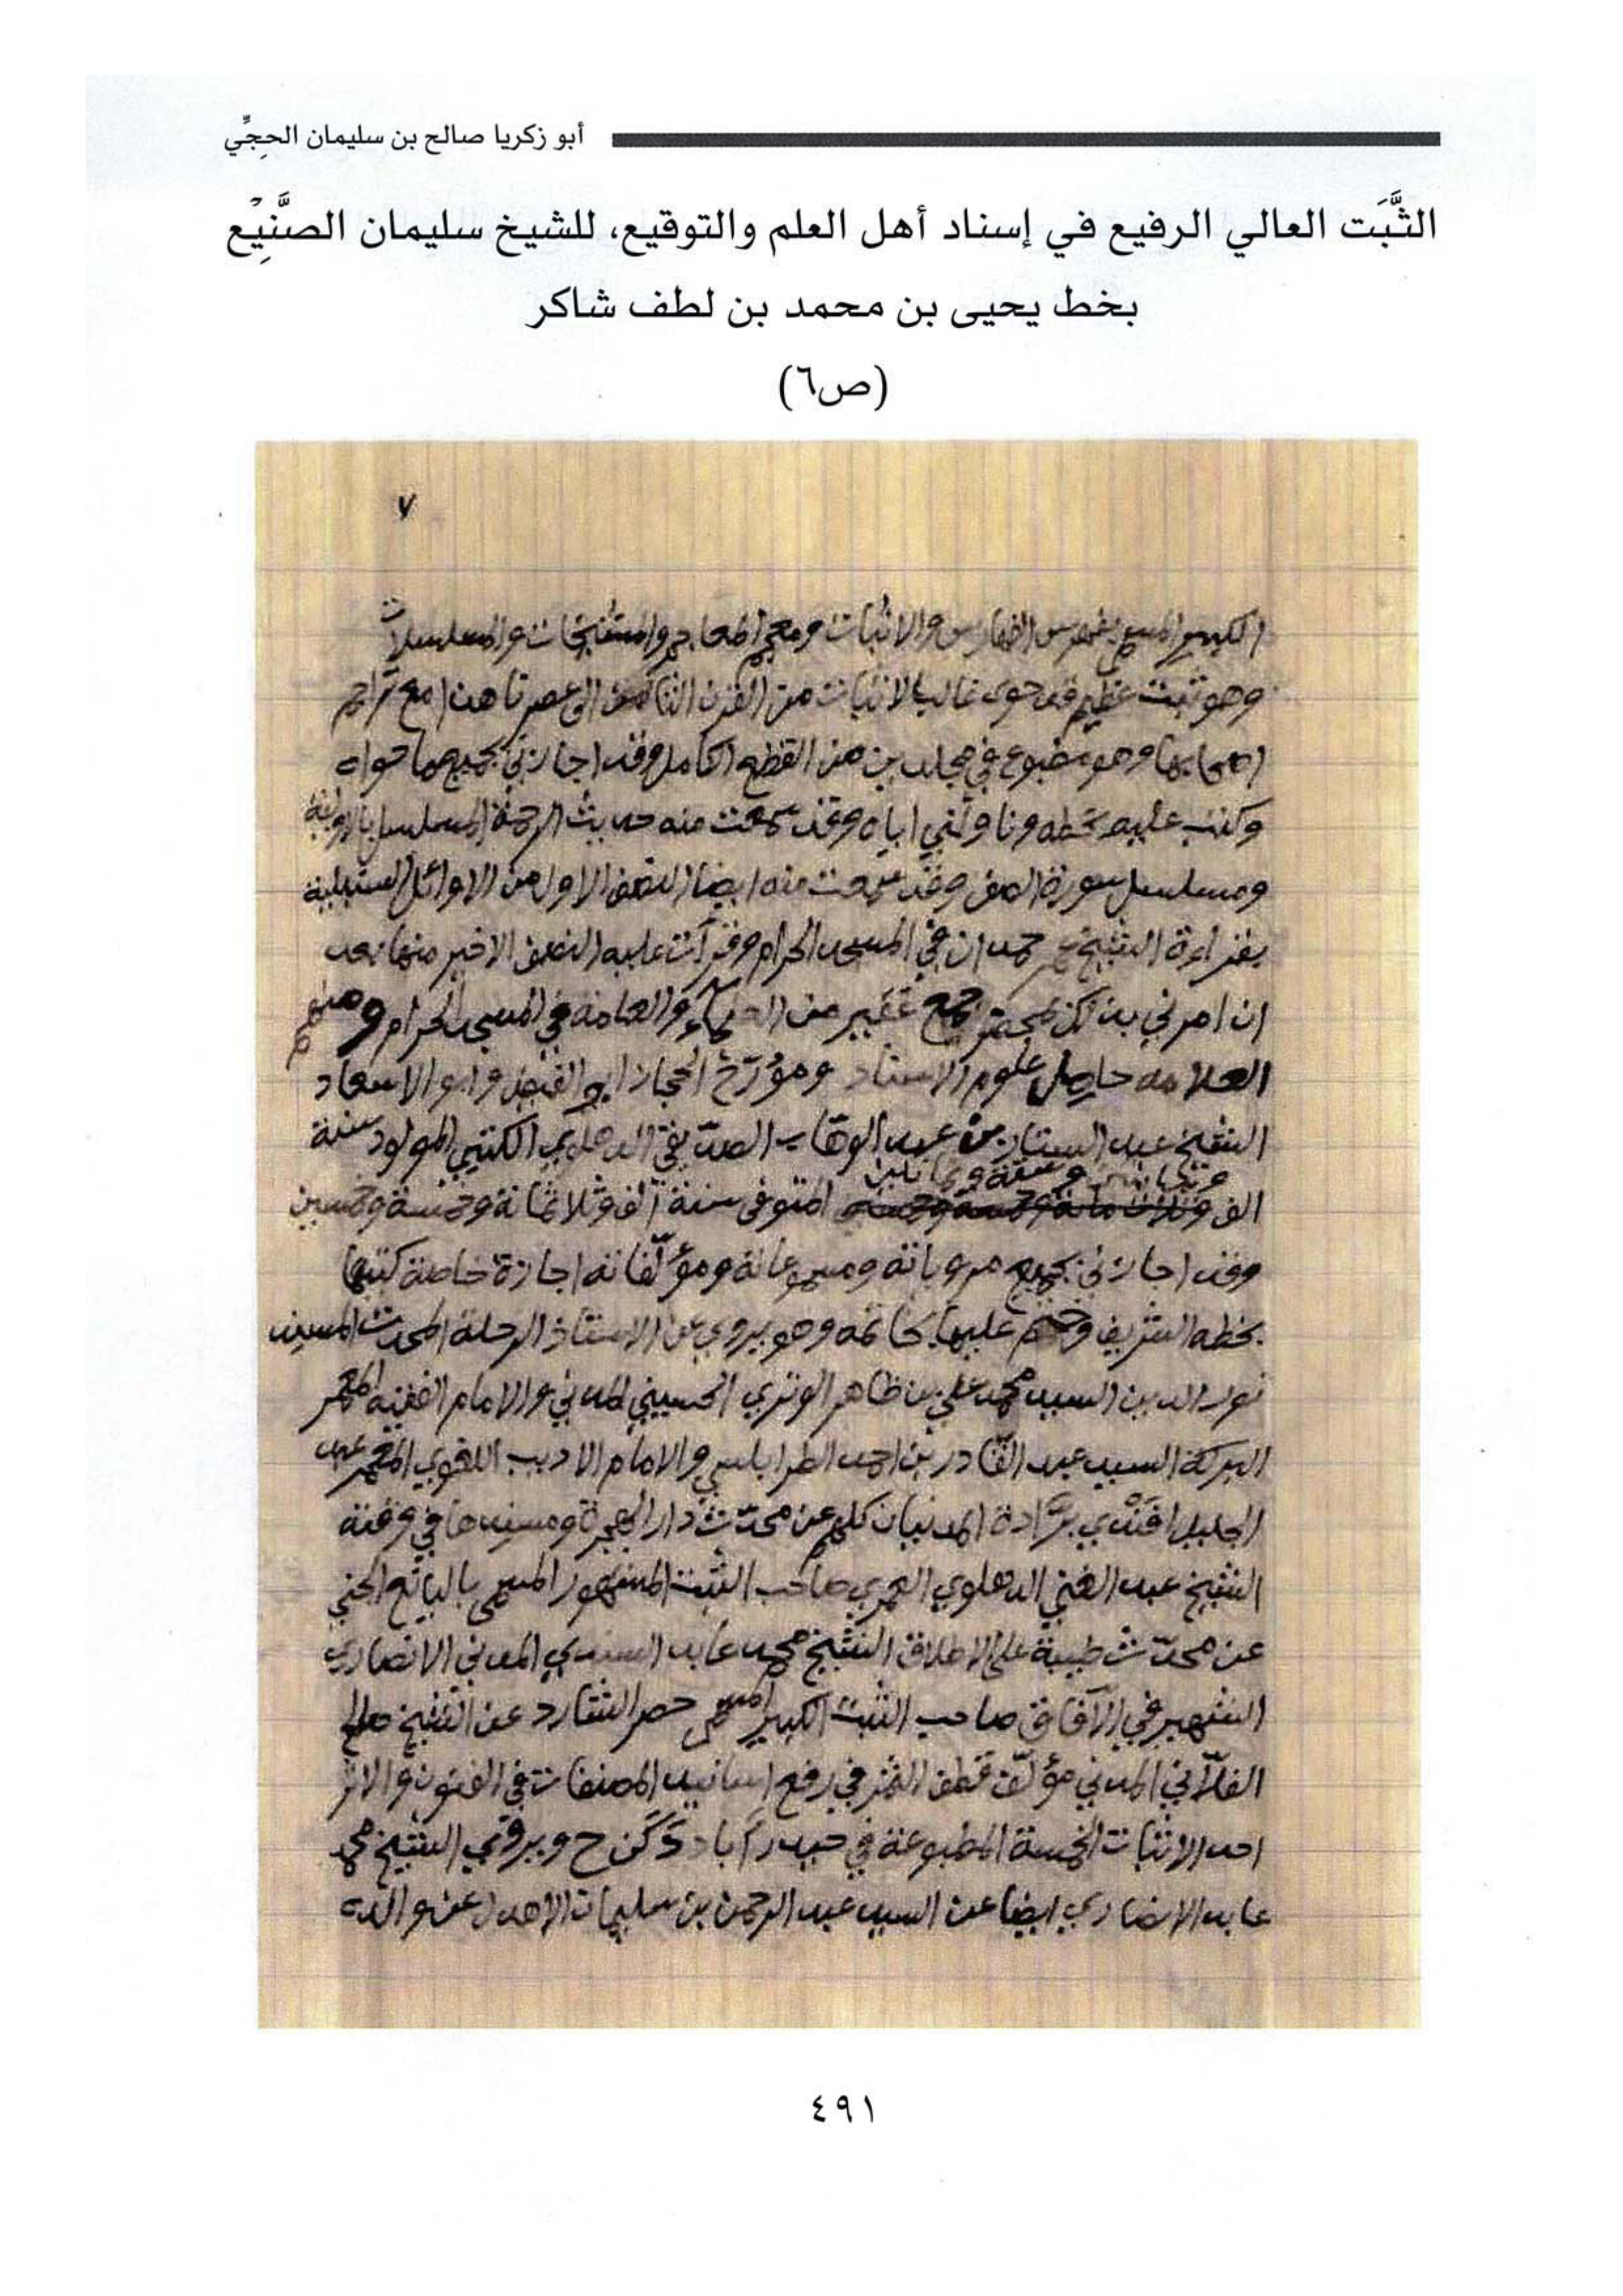 أبو زكريا صالح بن سليمان الحجِّي
الثَّبَت العالي الرفيع في إسناد أهل العلم والتوقيع، للشيخ سليمان الصنِّيْع
بخط يحيى بن محمد بن لطف شاكر
(ص٦)
٧
الكبير المسمى بفهرس الفهارس والاثبات ومعجم المعاجم والمشيخات والمسلسلات
وهو ثبت عظيم قد حوى غالب الاثبات من القرن الثامن الى عصرنا هذا مع تراجم
اصحابها وهو مطبوع في مجلدين من القطع الكامل وقد اجازني بجميع ما حواه
وكتب عليه بخطه وناولني اياه وقد سمعت منه حديث الرحمة المسلسل بالاولية
ومسلسل سورة الصف وقد سمعت منه ايضا النصف الاول من الاوائل السنبلية
بقراءة الشيخ عمر حمدان في المسجد الحرام وقرأت عليه النصف الاخير منها بعد
ان امرني بذلك بمحضر جمع غفير من العلماء والعامة في المسجد الحرام ومنهم
العلامة حامل علوم الاسناد ومؤرّخ الحجاز ابو الفيض وابو الاسعاد
الشيخ عبد الستار بن عبد الوهاب الصدّيقي الدهلوي الكتبي المولود سنة
الف ومائتين وستة وثمانين المتوفى سنة ألف وثلاثمائة وخمسة وخمسين
وقد اجازني بجميع مروياته ومسموعاته ومؤلّفاته اجازة خاصة كتبها
بخطه الشريف وختم عليها بخاتمه وهو يروي عن الاستاذ الرحلة المحدث المسند
نور الدين السيد محمد علي بن ظاهر الوتري الحسيني المدني والامام الفقيه المعمر
البركة السيد عبد القادر بن احمد الطرابلسي والامام الاديب اللغوي المعمر عبد
الجليل افندي برّادة المدنيان كلهم عن محدّث دار الهجرة ومسندها في وقته
الشيخ عبد الغني الدهلوي العمري صاحب الثبت المشهور المسمى باليانع الجني
عن محدّث طيبة على الاطلاق الشيخ محمد عابد السندي المدني الانصاري
الشهير في الآفاق صاحب الثبت الكبير المسمى حصر الشارد عن الشيخ صالح
الفلّاني المدني مؤلّف قطف الثمر في رفع اسانيد المصنفات في الفنون والاثر
احد الاثبات الخمسة المطبوعة في حيدر آباد دَكَن ح ويروي الشيخ محمد
عابد الانصاري ايضا عن السيد عبد الرحمن بن سليمان الاهدل عن والده
٤٩١